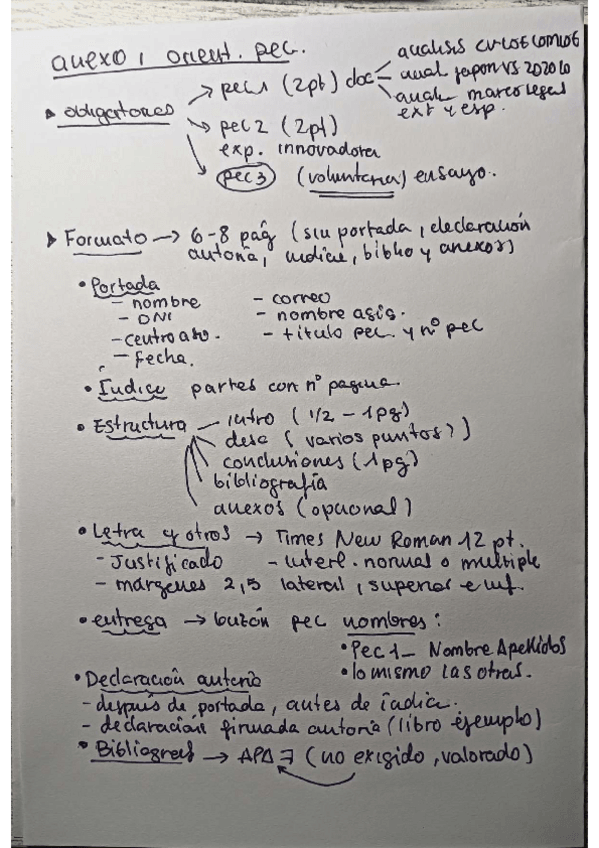 anexo 1 orient. pec.
▸ obligatorias → pec 1 (2pt) doc — analisis CV LOE LOMLOE
— anal japon VS 2020
— anal. marco legal
ext y esp.
→ pec 2 (2pt)
exp. innovadora
→ pec 3 (voluntaria) ensayo.
▸ Formato → 6-8 pág (sin portada, declaración
autoría, índice, biblio y anexos)
• Portada
– nombre – correo
– DNI – nombre asig.
– centro aso. – título pec y nº pec
– fecha.
• Índice partes con nº pagina.
• Estructura — intro (1/2 – 1pg)
desa (varios puntos?)
conclusiones (1pg)
bibliografía
anexos (opcional)
• Letra y otros → Times New Roman 12 pt.
– Justificado – interl. normal o multiple
– márgenes 2,5 lateral, superior e inf.
• entrega → buzón pec nombres:
• Pec 1_ Nombre Apellidos
• lo mismo las otras.
• Declaración autoría
– después de portada, antes de índice.
– declaración firmada autoría (libro ejemplo)
• Bibliograf → APA 7 (no exigido, valorado)